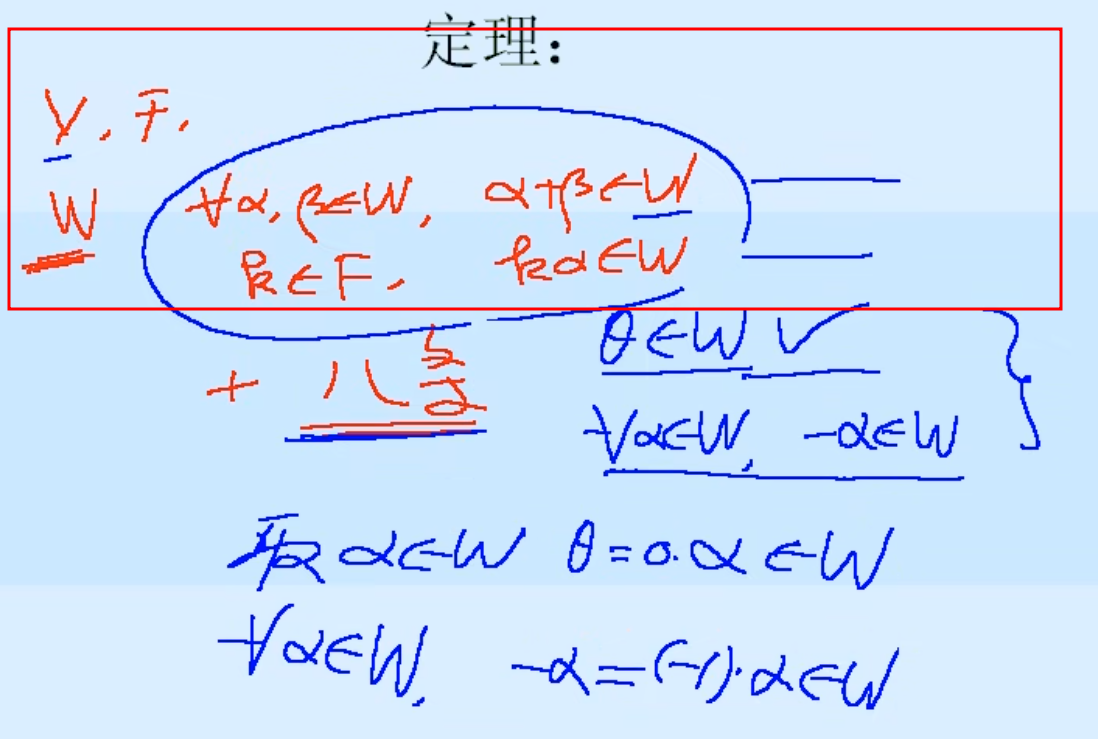 定理：
V, F,
W ∀α, β∈W, α+β∈W
k∈F, kα∈W
+ 八条 θ∈W √
∀α∈W, -α∈W
取 α∈W θ=0·α∈W
∀α∈W, -α=(-1)·α∈W